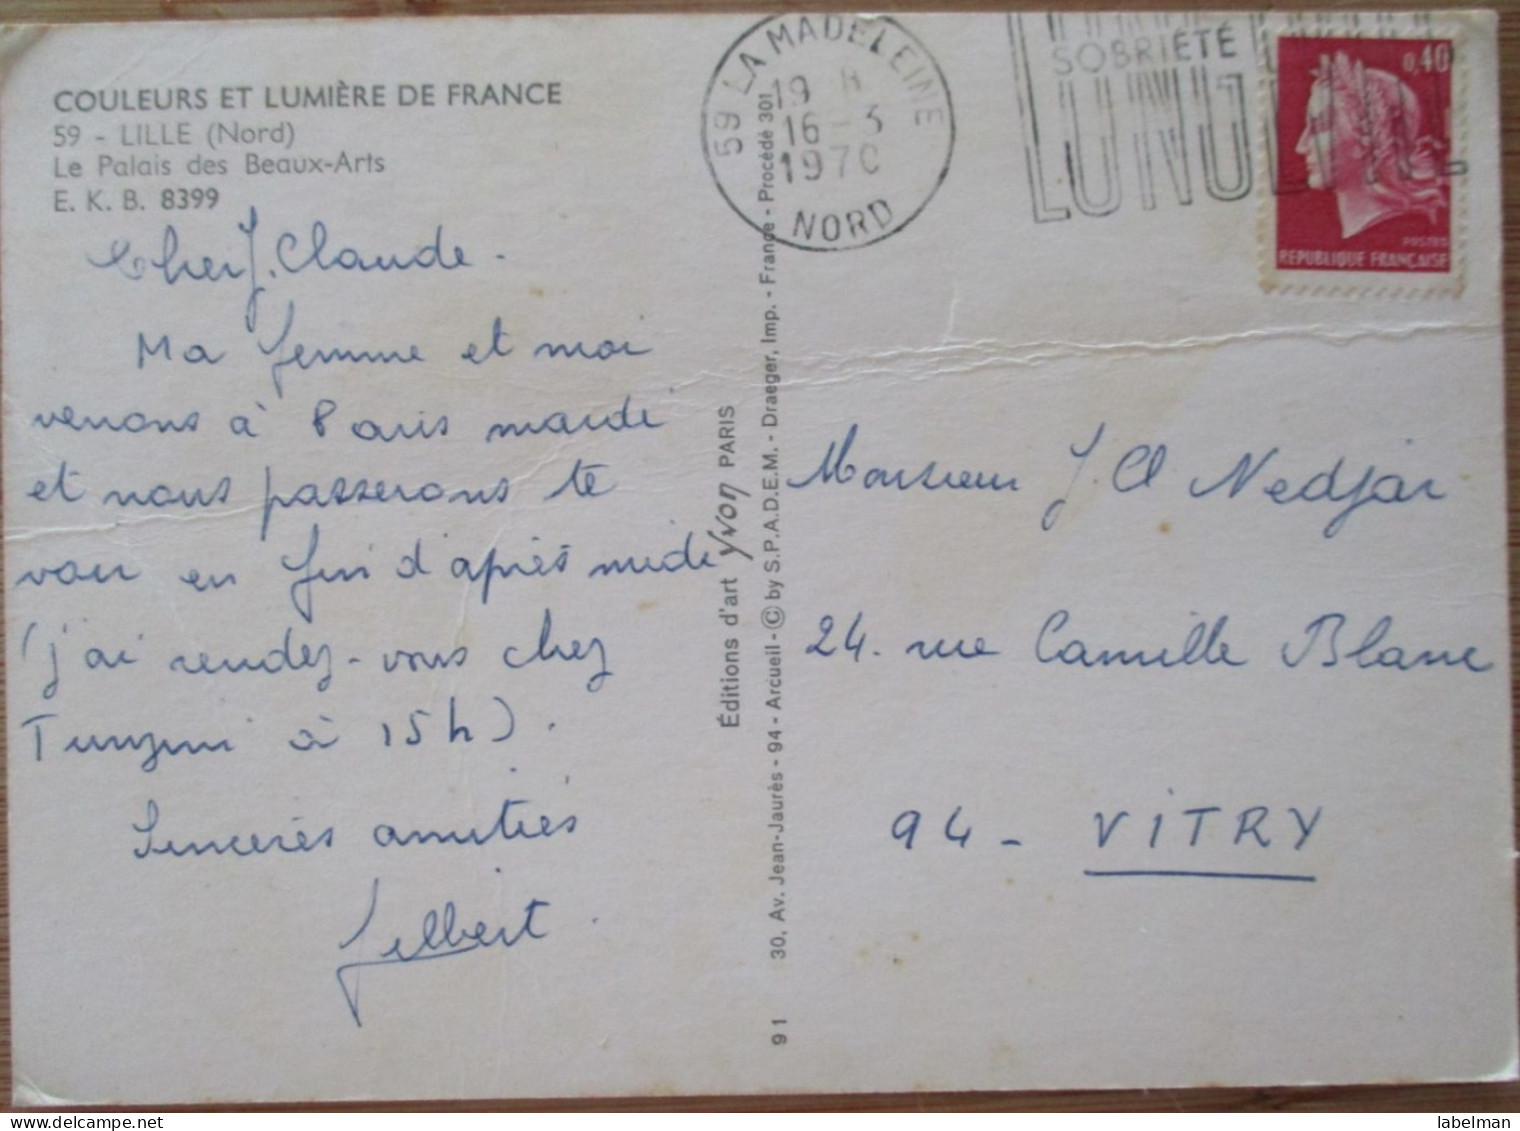 COULEURS ET LUMIÈRE DE FRANCE
59 - LILLE (Nord)
Le Palais des Beaux-Arts
E. K. B. 8399
Cher J. Claude.
Ma femme et moi
venons à Paris mardi
et nous passerons te
voir en fin d'après midi
(j'ai rendez-vous chez
à 15h).
Sincères amitiés
Gilbert.
59 LA MADELEINE
19 H
16 - 3
1970
NORD
SOBRIÉTÉ
0,40
POSTES
REPUBLIQUE FRANÇAISE
Éditions d'art Yvon PARIS
91 30, Av. Jean-Jaurès - 94 - Arcueil - © by S.P.A.D.E.M. - Draeger, Imp. - France - Procédé 301
Monsieur J. Cl Nedjar
24. rue Camille Blanc
94 - VITRY
labelman